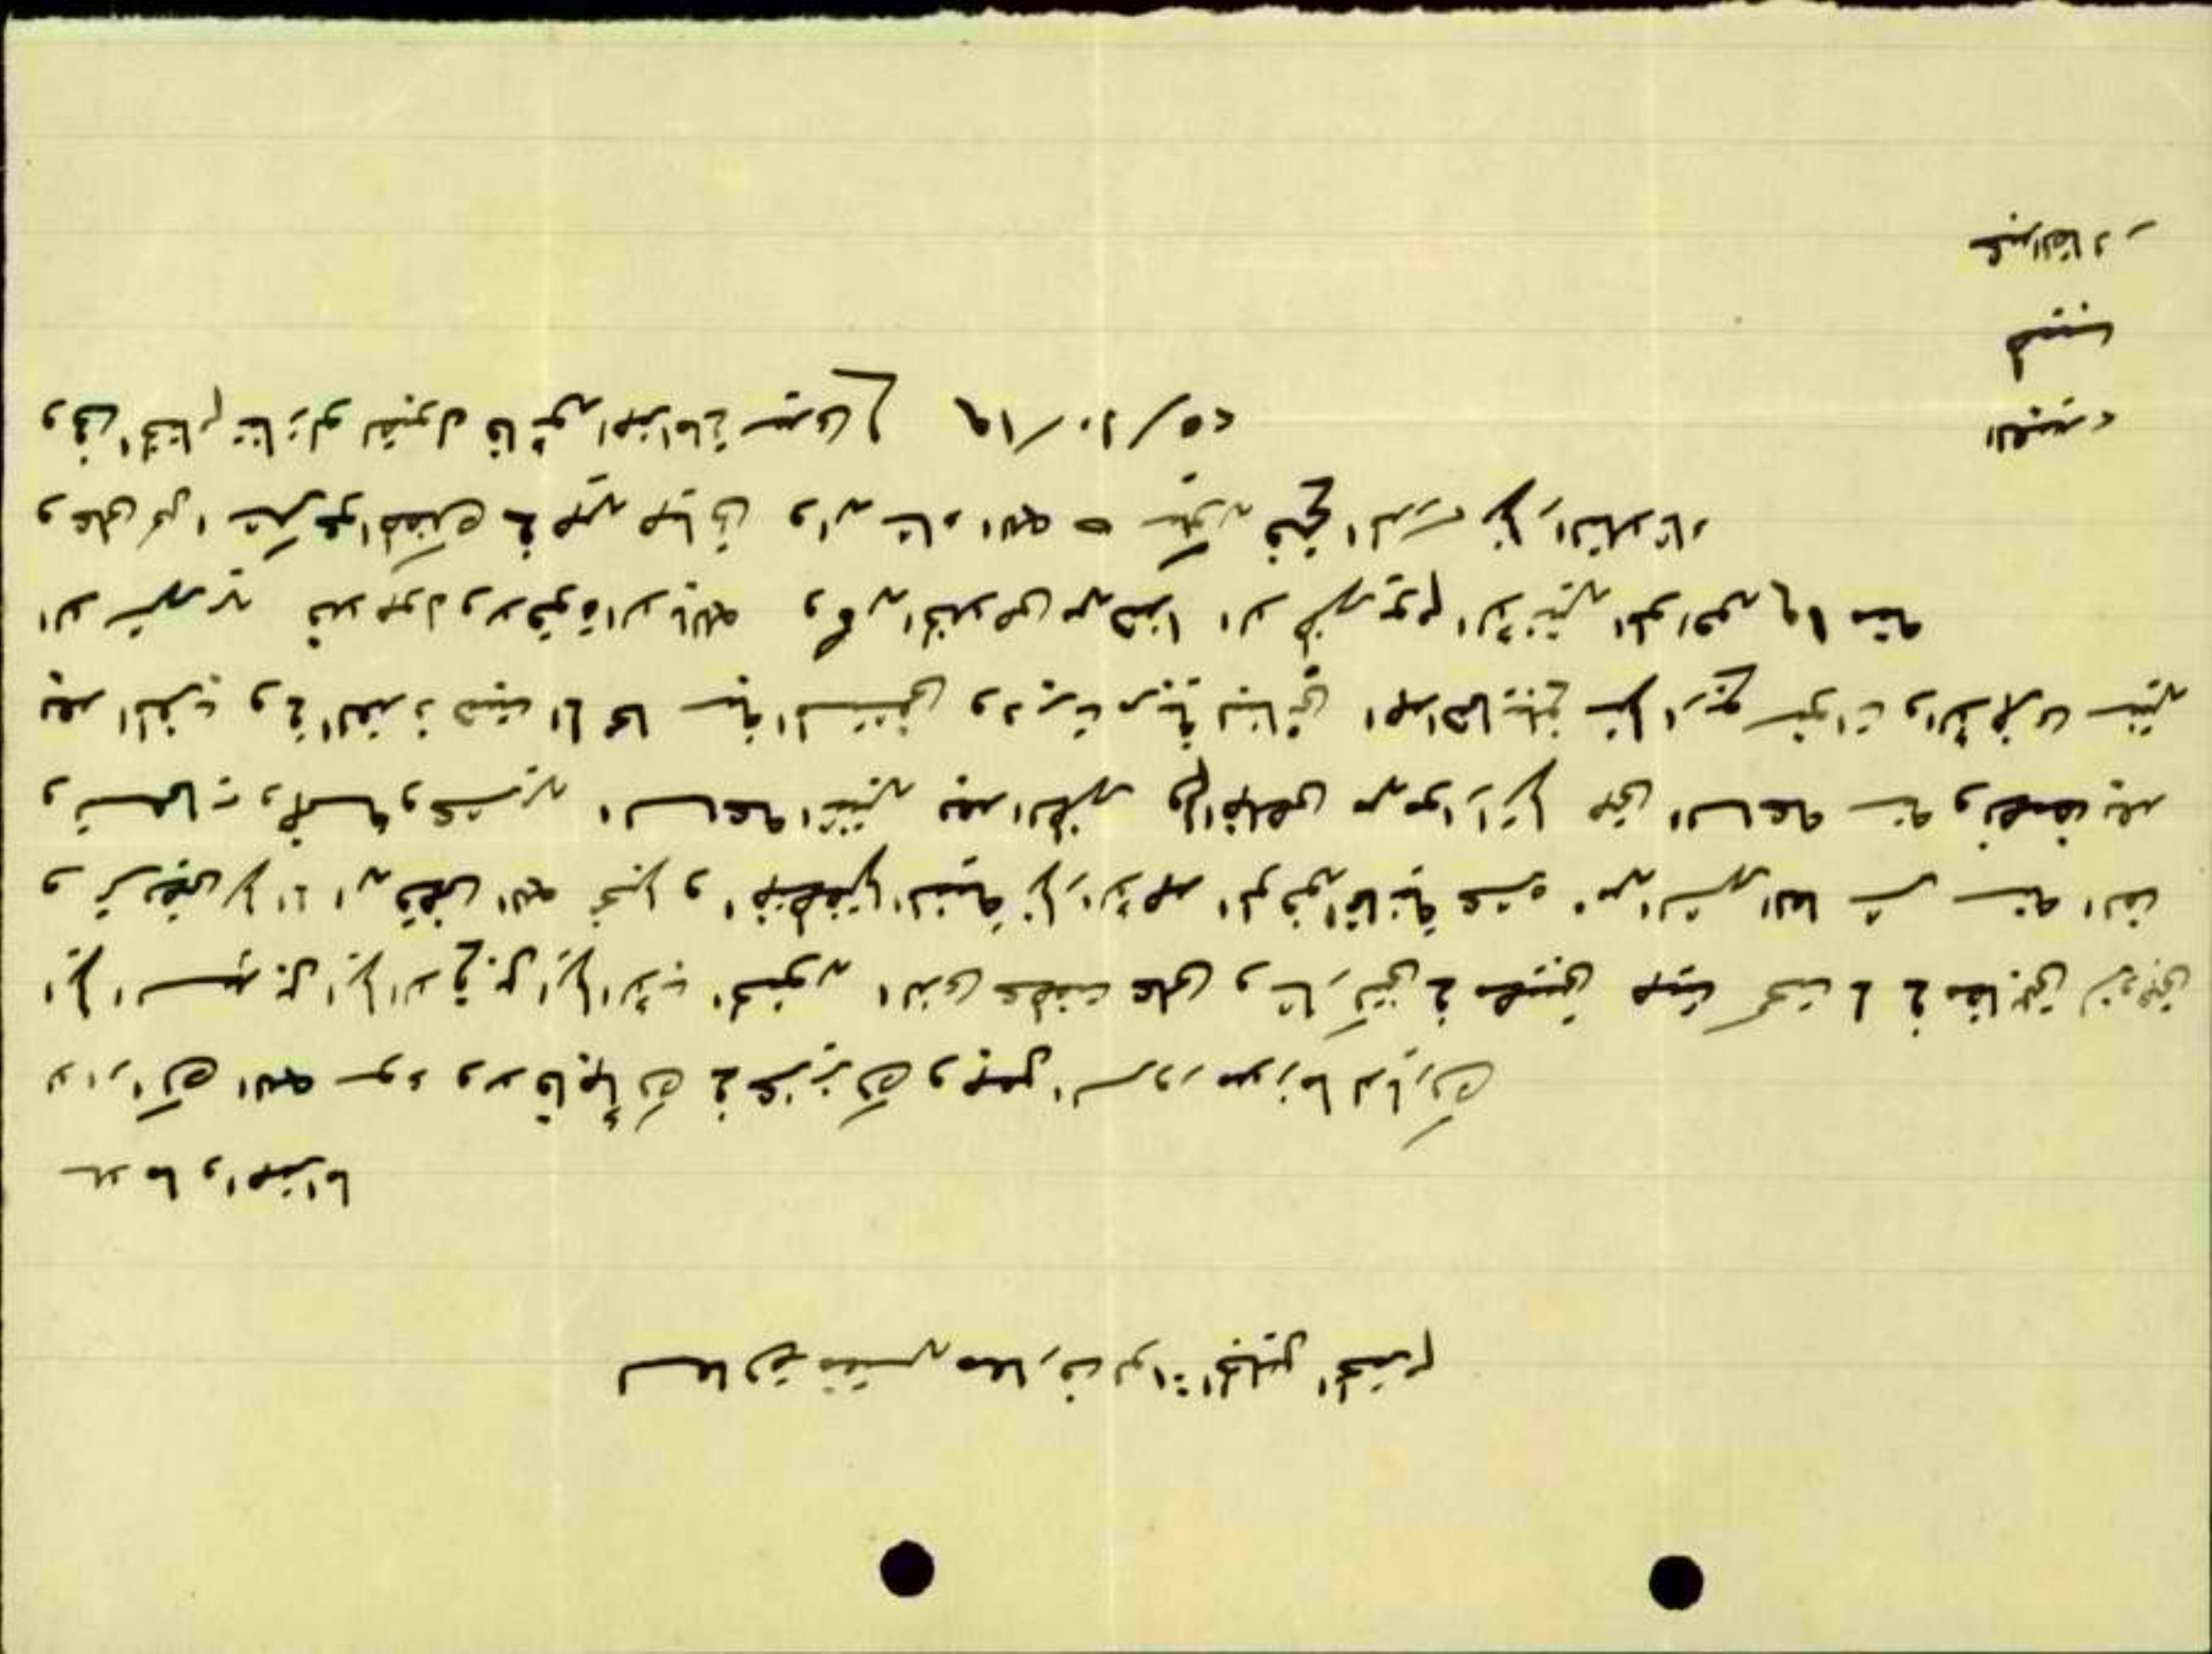 لسعادة مفتش معارف لواء الجليل المحترم
سلاما واحتراما
لا اراك الله سوء ولا فاجأك في عزيزك وجعل السرور موزعا لدارك
ايها السيد بل ايها الاخ بل ايها الأب الحنون الذي عطفت علي وشاركتني في مصيبتي حيث كنت في
الا ان قضى الله خيرا واختطفتها المنية نهار الأحد الموافق ثمانية عشره من الشهر العاشر سنة الف
وتسعماية وخمسة وعشرين الساعة اثنين بعد الظهر ولم اتخلص من مواراتها حتى الساعة ستة ونصف بعد
بعد الغروب وفي الغد ذهبت الى عكا المستشفى ودبرت مربية لبناتي احداهما تبلغ سنها اربع سنوات والأخرى سنتين
الا شهرين فلا حول ولا قوة الا بالله اتخلص من هذا الا ظهر يوم الاثنين الموافق ١٩ منه
وعلى كل اشكر عواطفكم في حياتي وان شاء الله ستكون فتح المدرسة نهار الثلاثاء
وفي الختام تنازلوا لقبول فائق احتراماتي سيدي ١٩/١٠/٢٥
عبدالقادر